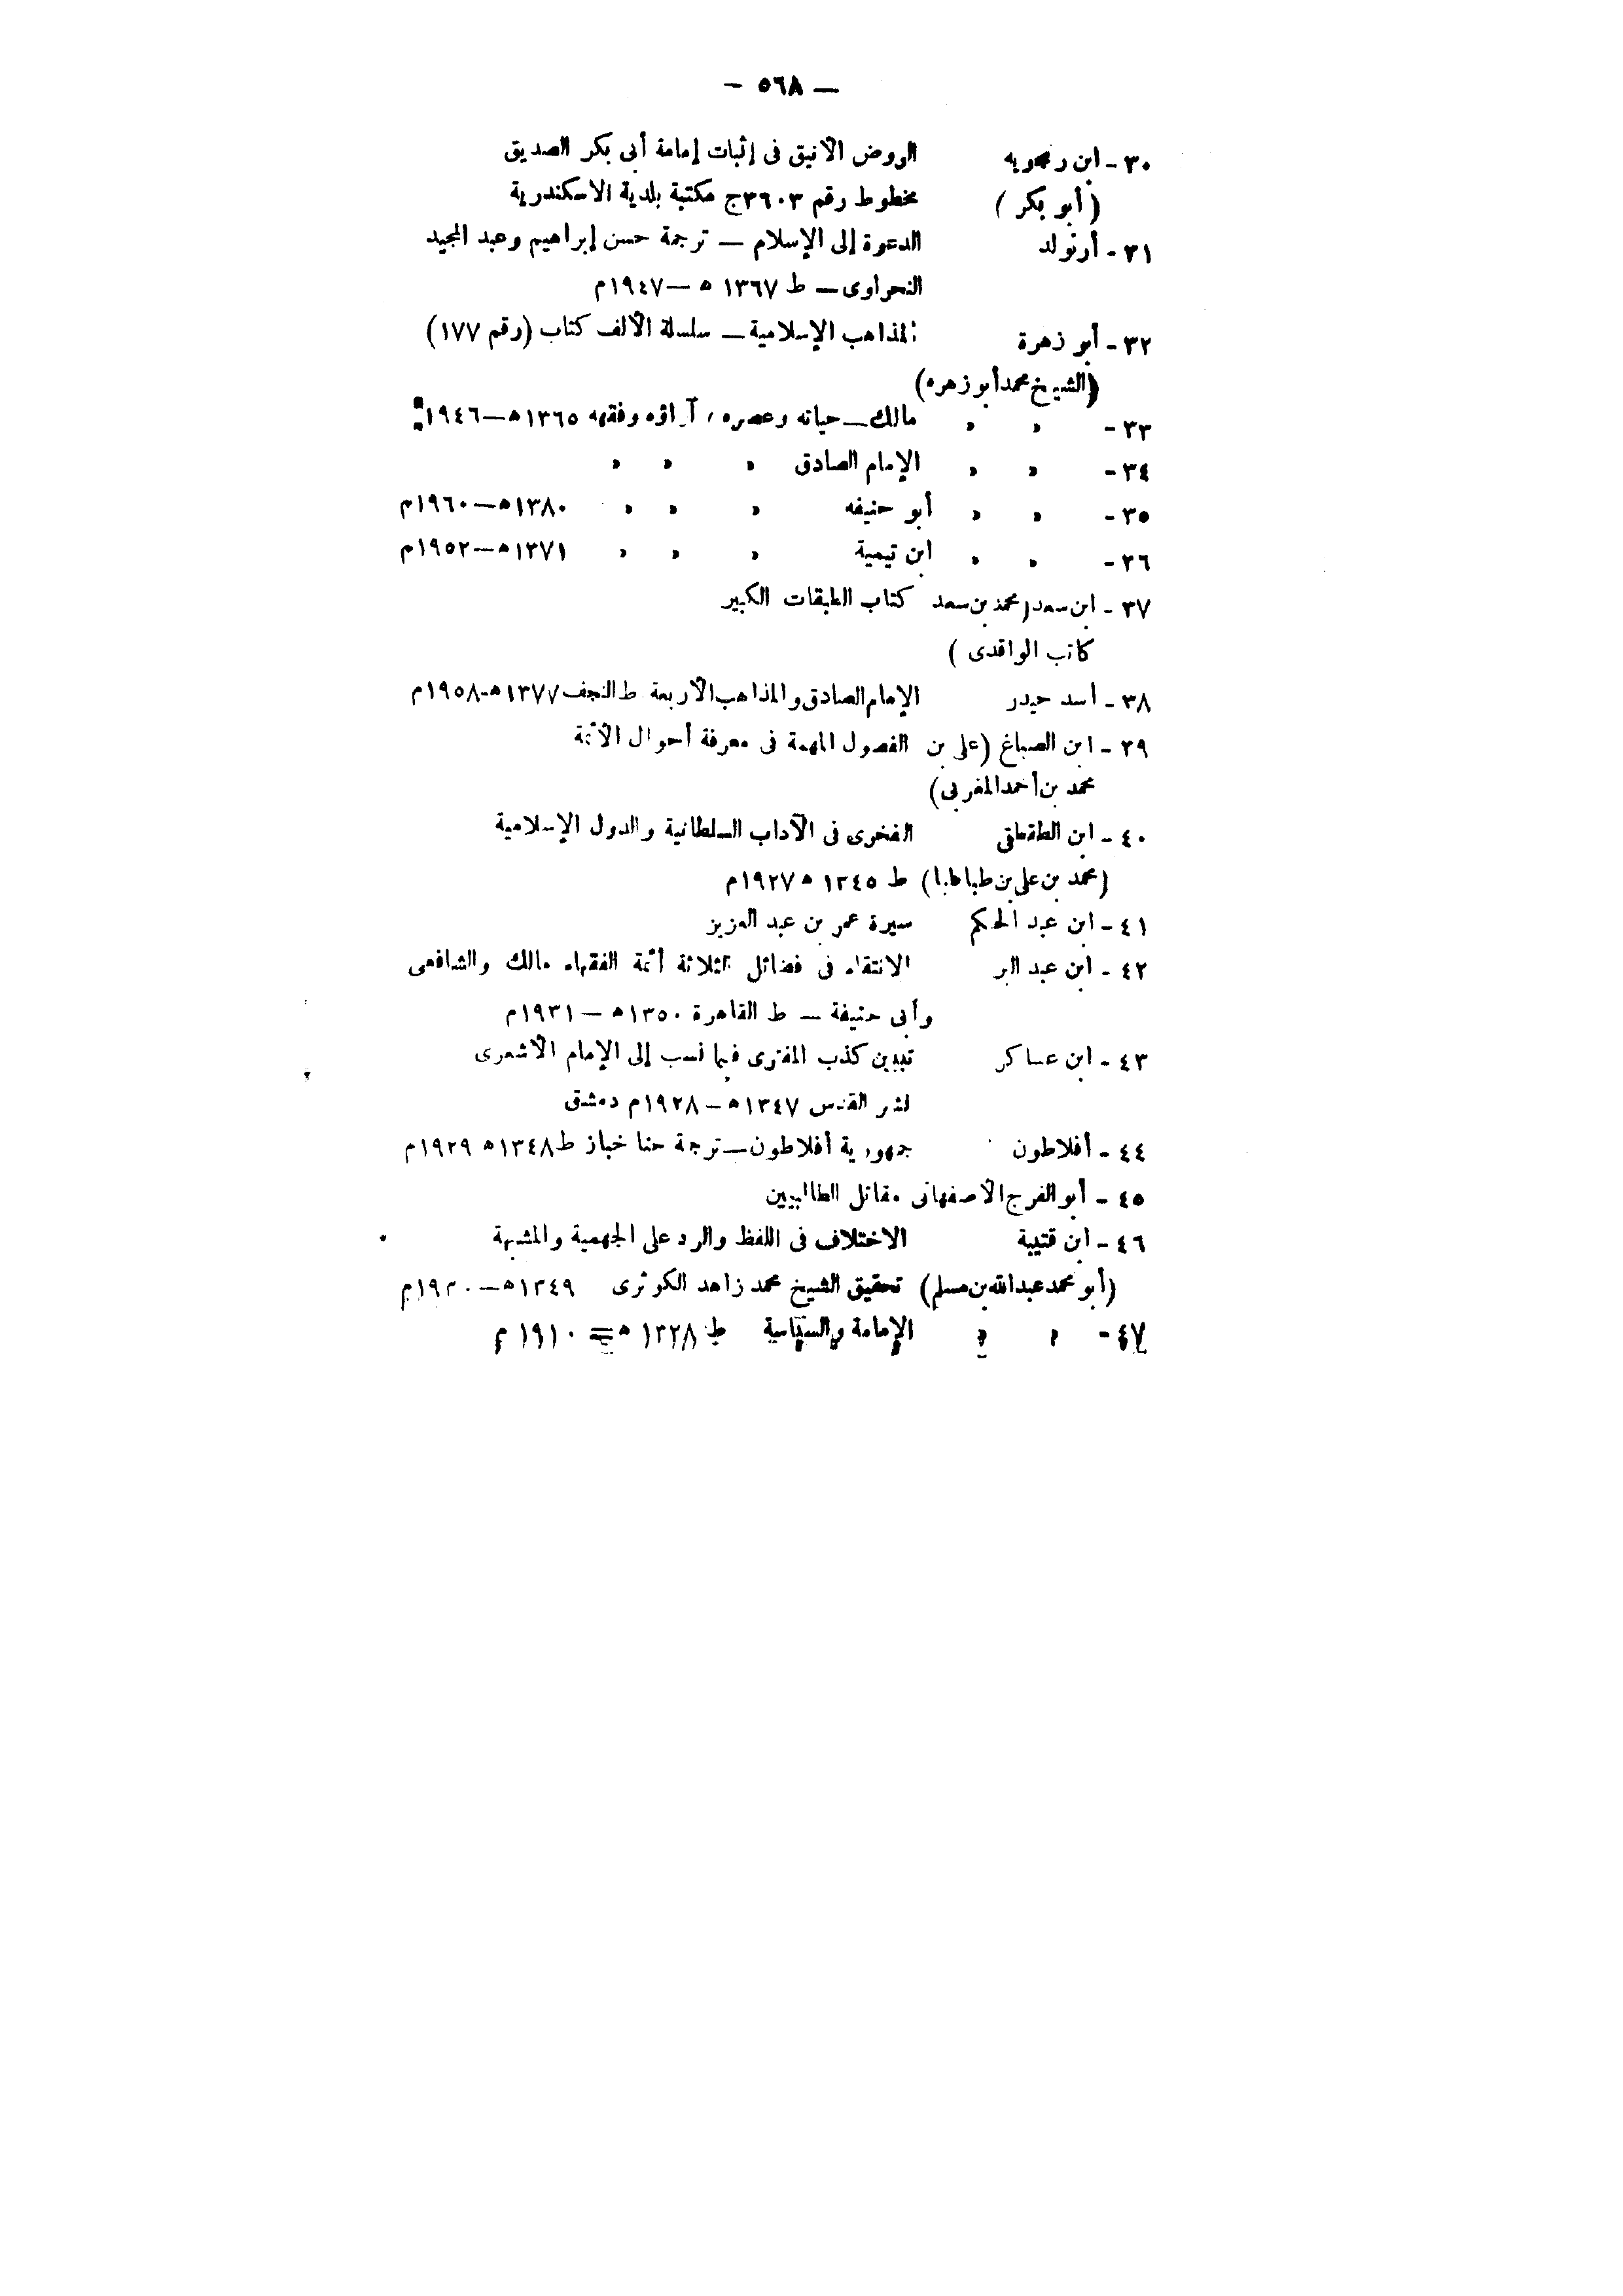 — ٥٦٨ —
٣٠ - ابن زنجويه الروض الأنيق فى إثبات إمامة أبى بكر الصديق
(أبو بكر) مخطوط رقم ٣٦٠٣ج مكتبة بلدية الاسكندرية
٣١ - أرنولد الدعوة إلى الإسلام — ترجمة حسن إبراهيم وعبد المجيد
النحراوى — ط ١٣٦٧ ه — ١٩٤٧م
٣٢ - أبو زهرة المذاهب الإسلامية — سلسلة الألف كتاب (رقم ١٧٧)
(الشيخ محمد أبو زهره)
٣٣ - » » مالك — حياته وعصره، آراؤه وفقهه ١٣٦٥ه — ١٩٤٦م
٣٤ - » » الإمام الصادق » » »
٣٥ - » » أبو حنيفه » » » ١٣٨٠ه — ١٩٦٠م
٣٦ - » » ابن تيمية » » » ١٣٧١ه — ١٩٥٢م
٣٧ - ابن سعد (محمد بن سعد كتاب الطبقات الكبير
كاتب الواقدى)
٣٨ - أسد حيدر الإمام الصادق والمذاهب الأربعة ط النجف ١٣٧٧ه - ١٩٥٨م
٣٩ - ابن الصباغ (على بن الفصول المهمة فى معرفة أحوال الأئمة
محمد بن أحمد المغربى)
٤٠ - ابن الطقطقى الفخرى فى الآداب السلطانية والدول الإسلامية
(محمد بن على بن طباطبا) ط ١٣٤٥ ه ١٩٢٧م
٤١ - ابن عبد الحكم سيرة عمر بن عبد العزيز
٤٢ - ابن عبد البر الانتقاء فى فضائل الثلاثة أئمة الفقهاء مالك والشافعى
وأبى حنيفة — ط القاهرة ١٣٥٠ه — ١٩٣١م
٤٣ - ابن عساكر تبيين كذب المفترى فيما نسب إلى الإمام الأشعرى
نشر القدس ١٣٤٧ه — ١٩٢٨م دمشق
٤٤ - أفلاطون جمهورية أفلاطون — ترجمة حنا خباز ط ١٣٤٨ه ١٩٢٩م
٤٥ - أبو الفرج الأصفهانى مقاتل الطالبيين
٤٦ - ابن قتيبة الاختلاف فى اللفظ والرد على الجهمية والمشبهة
(أبو محمد عبدالله بن مسلم) تحقيق الشيخ محمد زاهد الكوثرى ١٣٤٩ه — ١٩٣٠م
٤٧ - » » الإمامة والسياسة ط ١٣٢٨ ه — ١٩١٠م